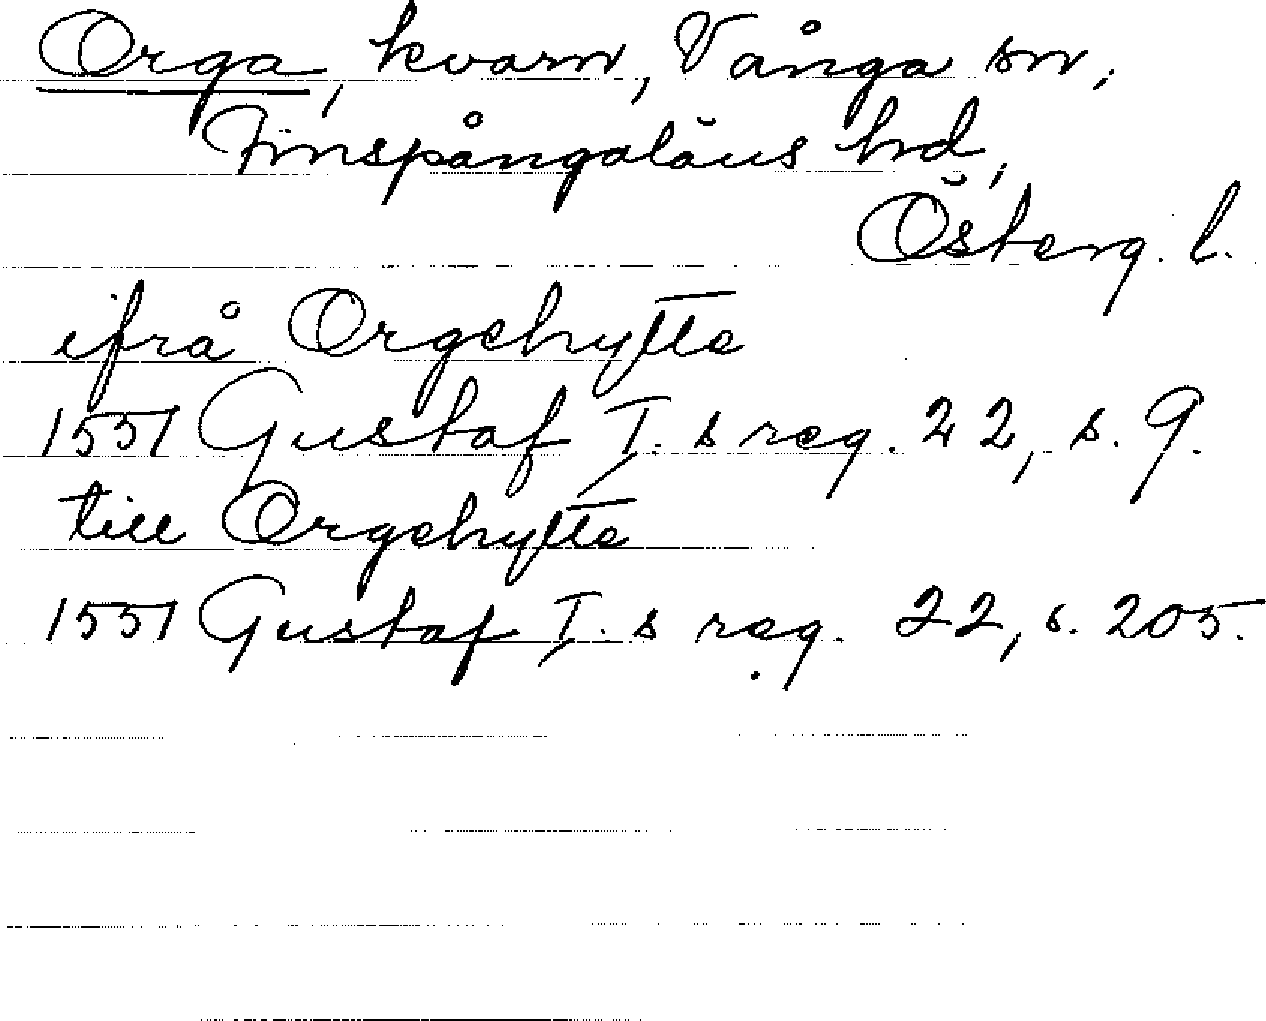 Orga, kvarn, Vånga sn,
Finspångaläns hd,
Österg. l.
ifrå Orgehytte
1551 Gustaf I.s reg. 22, s. 9.
till Orgehytte
1551 Gustaf I.s reg. 22, s. 205.